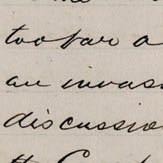 too far a
an invas
discussio